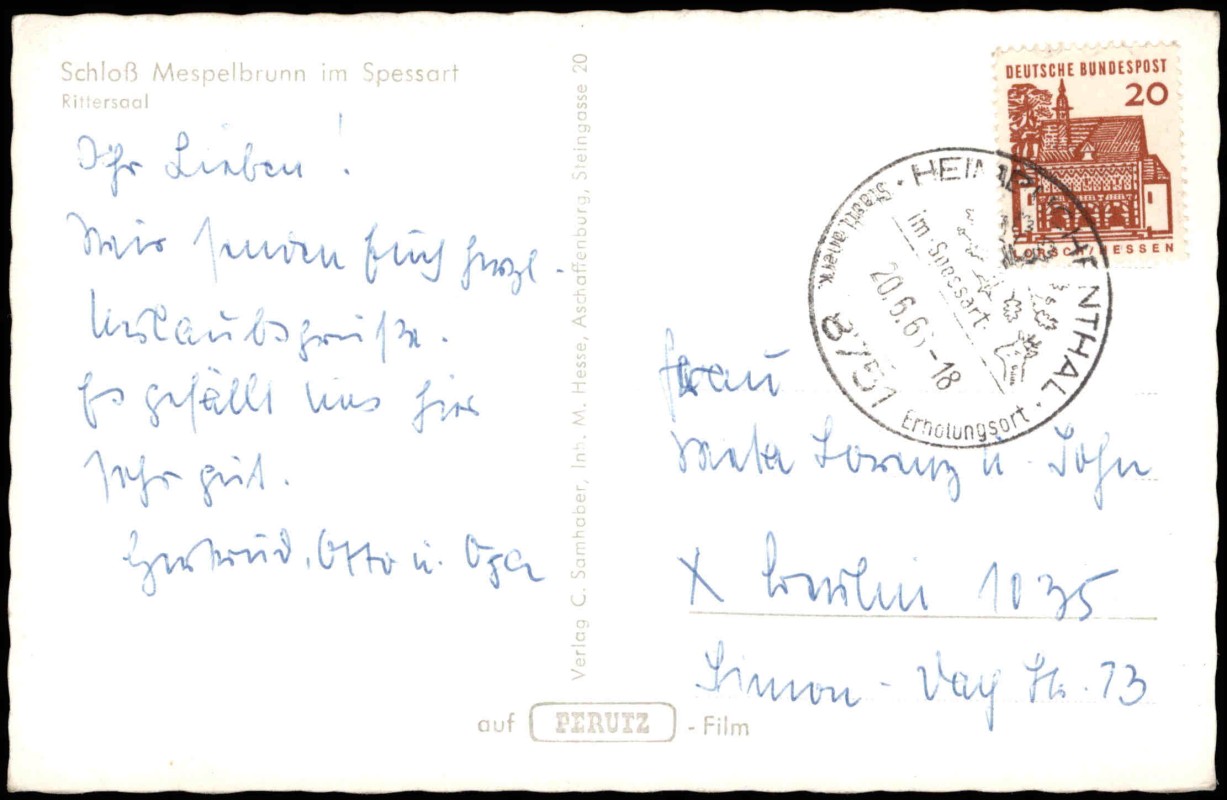 Schloß Mespelbrunn im Spessart
Rittersaal
Ihr Lieben!
Wir senden Euch herzl.
Urlaubsgrüße.
Es gefällt uns hier
sehr gut.
Gertrud, Otto u. Opa
Verlag C. Samhaber, Inh. M. Hesse, Aschaffenburg, Steingasse 20
auf PERUTZ - Film
DEUTSCHE BUNDESPOST
20
LORSCH HESSEN
8751 HEIMBUCHENTHAL
Staatl. anerk.
Erholungsort
im Spessart
20.6.6 -18
Frau
Meta Lorenz u. Sohn
X Berlin 1035
Simon-Dach Str. 13